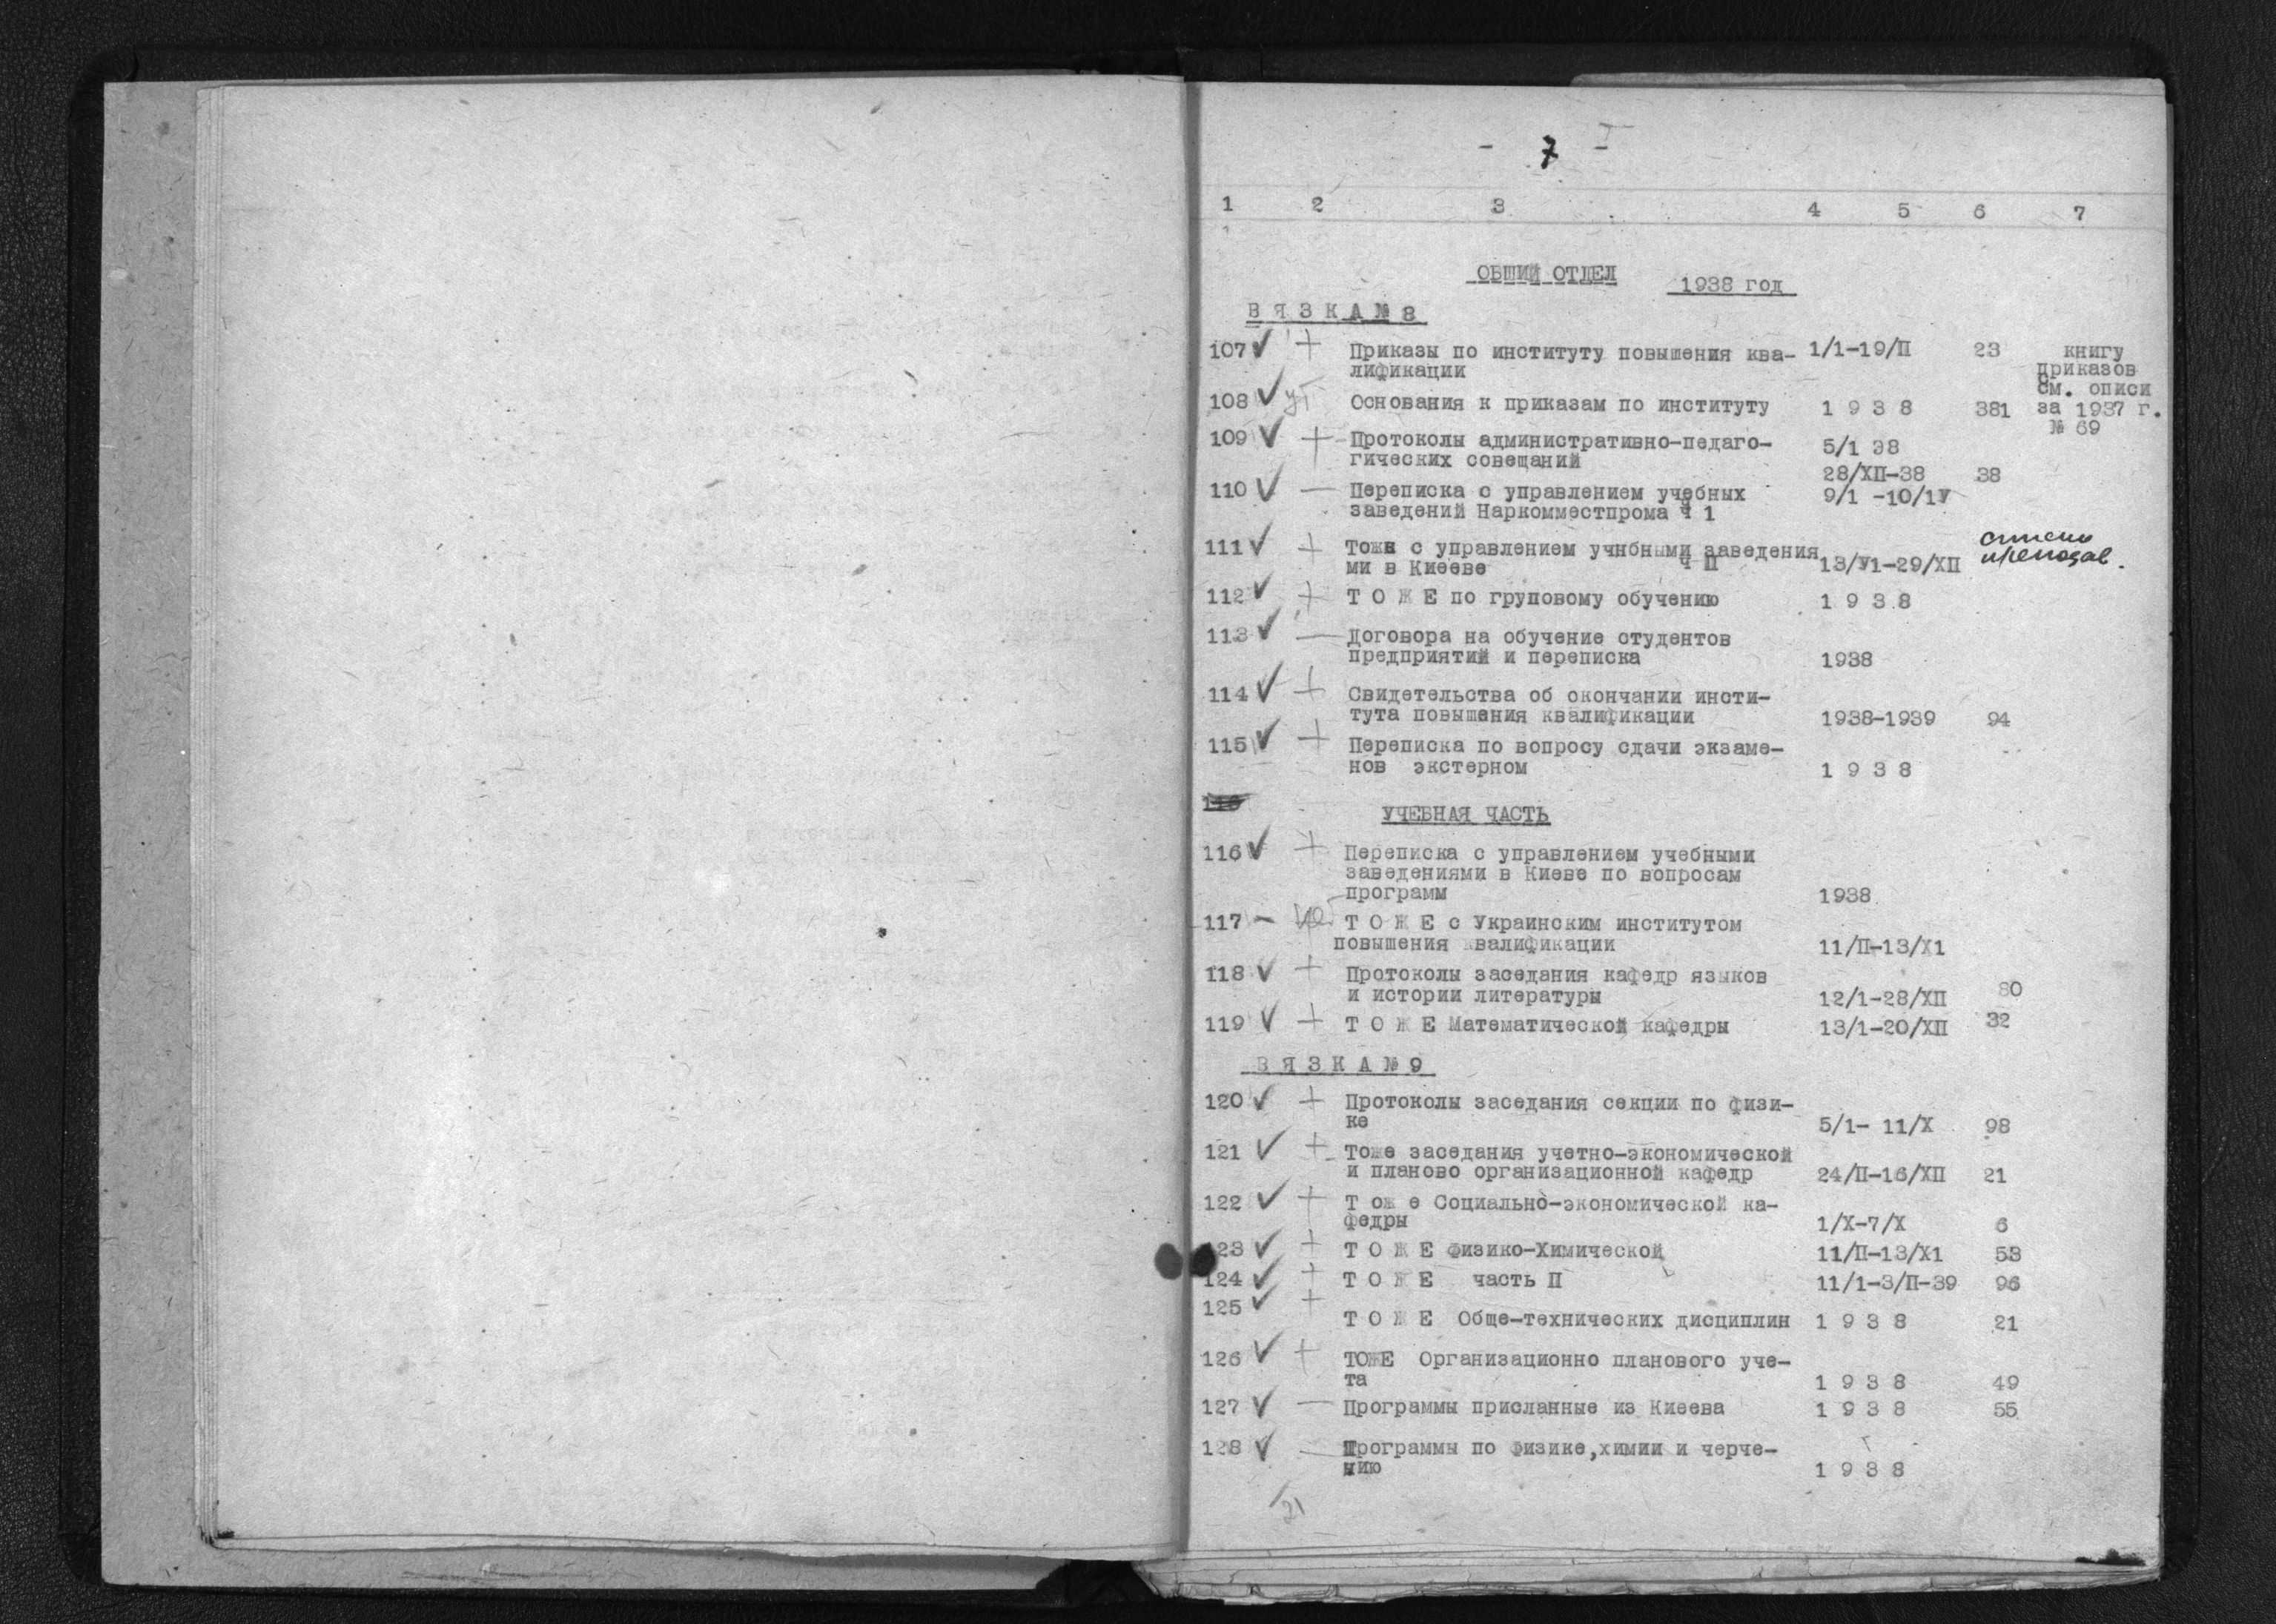 - 7 -
1 2 3 4 5 6 7
ОБЩИЙ ОТДЕЛ 1938 год
В Я З К А № 8
107 Приказы по институту повышения ква- 1/1-19/П 23 книгу
лификации приказов
см. описи
108 Основания к приказам по институту 1 9 3 8 381 за 1937 г.
№ 69
109 Протоколы административно-педаго- 5/1 38
гических совещаний 28/ХП-38 38
110 Переписка с управлением учебных 9/1 -10/1У
заведений Наркомместпрома ч 1
111 Тоже с управлением учнбными заведения
ми в Киееве ч П 13/У1-29/ХП список преподав.
112 Т О Ж Е по груповому обучению 1 9 3 8
113 Договора на обучение студентов
предприятий и переписка 1938
114 Свидетельства об окончании инсти-
тута повышения квалификации 1938-1939 94
115 Переписка по вопросу сдачи экзаме-
нов экстерном 1 9 3 8
116
УЧЕБНАЯ ЧАСТЬ
116 Переписка с управлением учебными
заведениями в Киеве по вопросам
программ 1938
117 - Т О Ж Е с Украинским институтом
повышения квалификации 11/П-13/Х1
118 Протоколы заседания кафедр языков
и истории литературы 12/1-28/ХП 80
119 Т О Ж Е Математической кафедры 13/1-20/ХП 32
В Я З К А № 9
120 Протоколы заседания секции по физи-
ке 5/1- 11/Х 98
121 Тоже заседания учетно-экономической
и планово организационной кафедр 24/П-16/ХП 21
122 Т ож е Социально-экономической ка-
федры 1/Х-7/Х 6
123 Т О Ж Е физико-Химической 11/П-13/Х1 53
124 Т О Ж Е часть П 11/1-3/П-39 96
125
Т О Ж Е Обще-технических дисциплин 1 9 3 8 21
126 ТОЖЕ Организационно планового уче-
та 1 9 3 8 49
127 Программы присланные из Киеева 1 9 3 8 55
128 Программы по физике,химии и черче-
нию 1 9 3 8
21